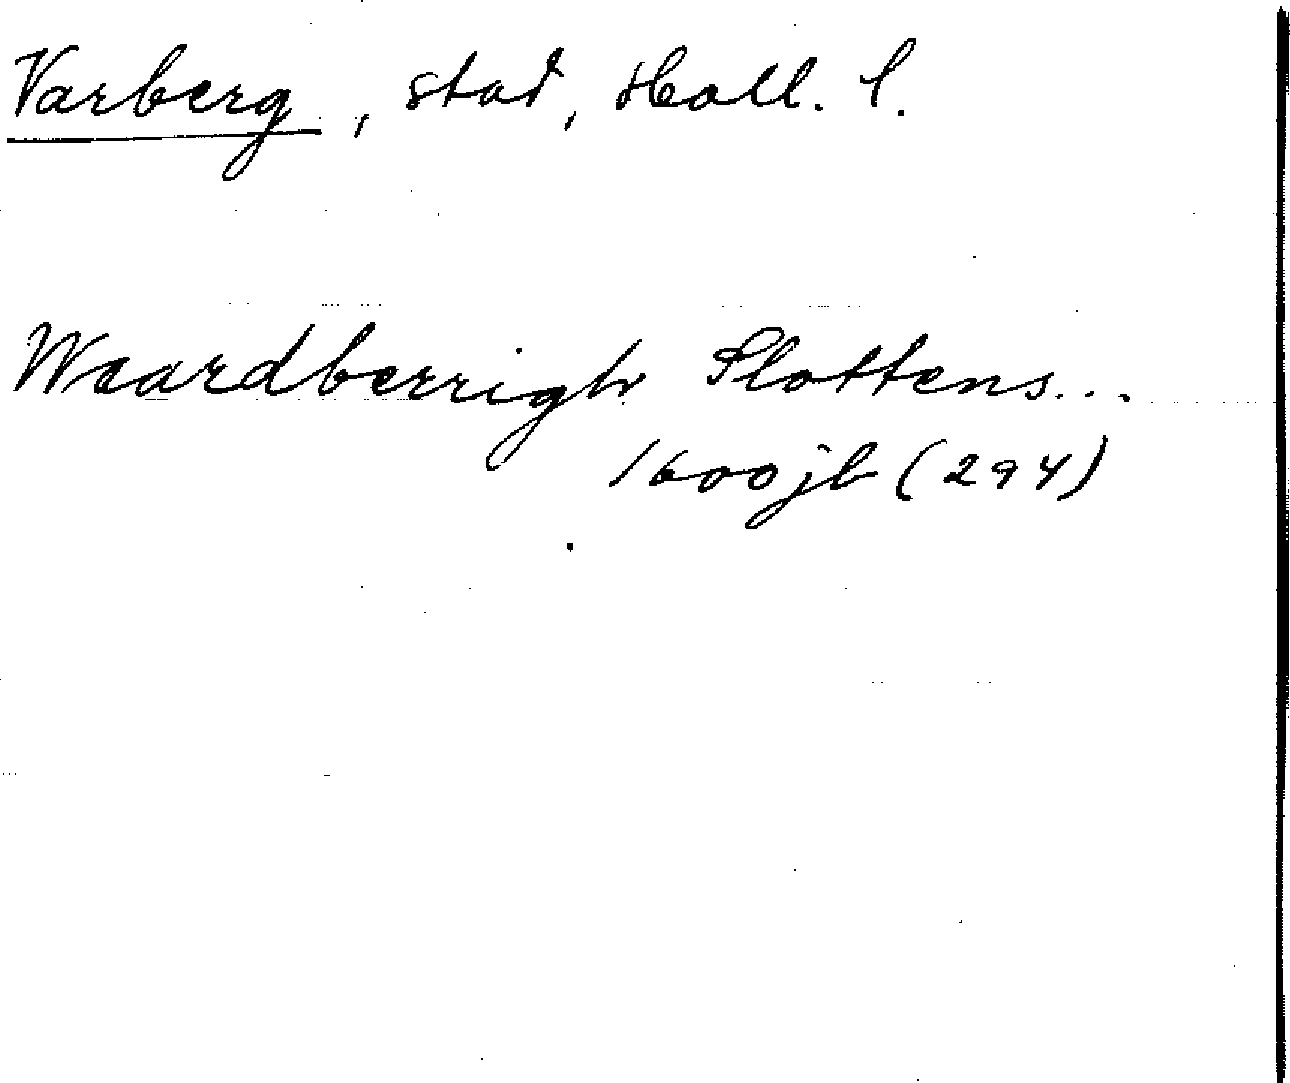 Varberg, stad, Hall. l.
Waardberrigh Slottens...
1600 jb (294)